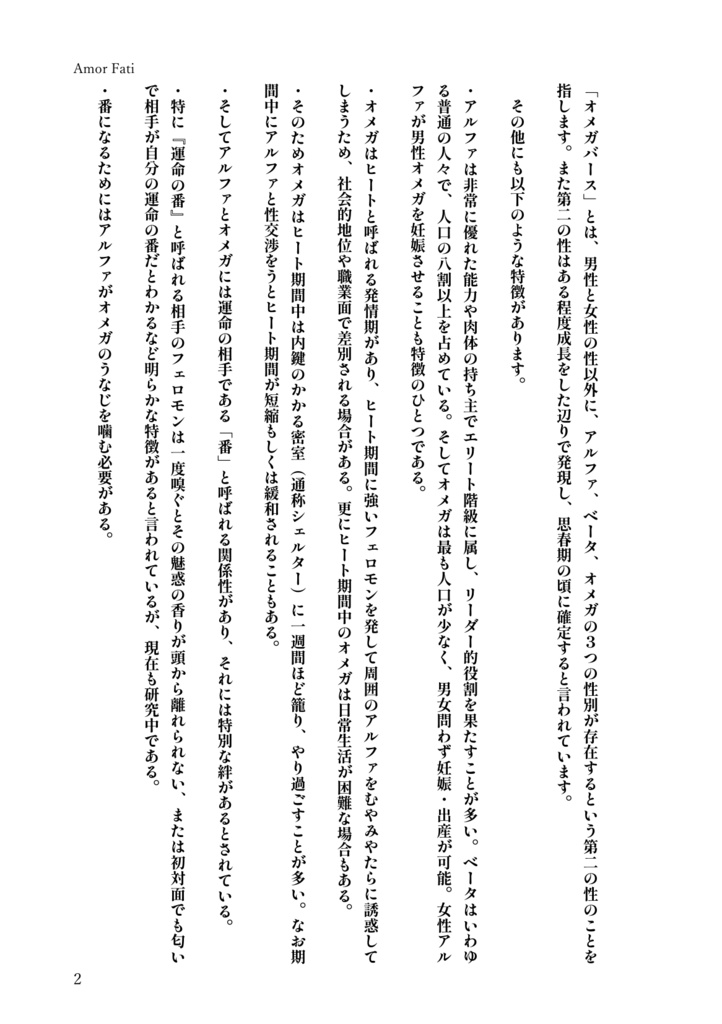 Amor Fati
「オメガバース」とは、男性と女性の性以外に、アルファ、ベータ、オメガの3つの性別が存在するという第二の性のことを
指します。また第二の性はある程度成長をした辺りで発現し、思春期の頃に確定すると言われています。
その他にも以下のような特徴があります。
・アルファは非常に優れた能力や肉体の持ち主でエリート階級に属し、リーダー的役割を果たすことが多い。ベータはいわゆ
る普通の人々で、人口の八割以上を占めている。そしてオメガは最も人口が少なく、男女問わず妊娠・出産が可能。女性アル
ファが男性オメガを妊娠させることも特徴のひとつである。
・オメガはヒートと呼ばれる発情期があり、ヒート期間に強いフェロモンを発して周囲のアルファをむやみやたらに誘惑して
しまうため、社会的地位や職業面で差別される場合がある。更にヒート期間中のオメガは日常生活が困難な場合もある。
・そのためオメガはヒート期間中は内鍵のかかる密室（通称シェルター）に一週間ほど籠り、やり過ごすことが多い。なお期
間中にアルファと性交渉をうとヒート期間が短縮もしくは緩和されることもある。
・そしてアルファとオメガには運命の相手である「番」と呼ばれる関係性があり、それには特別な絆があるとされている。
・特に『運命の番』と呼ばれる相手のフェロモンは一度嗅ぐとその魅惑の香りが頭から離れられない、または初対面でも匂い
で相手が自分の運命の番だとわかるなど明らかな特徴があると言われているが、現在も研究中である。
・番になるためにはアルファがオメガのうなじを噛む必要がある。
2